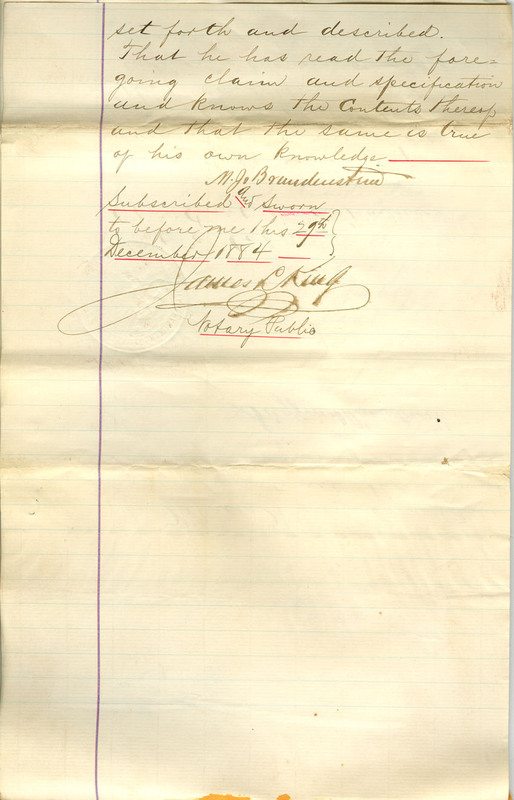 set forth and described.
That he has read the fore=
going claim and specification
and knows the Contents thereof
and that the same is true
of his own knowledge
M. J. Brandenstein
Subscribed and Sworn
to before me this 29th
December 1884
James L. King
Notary Public